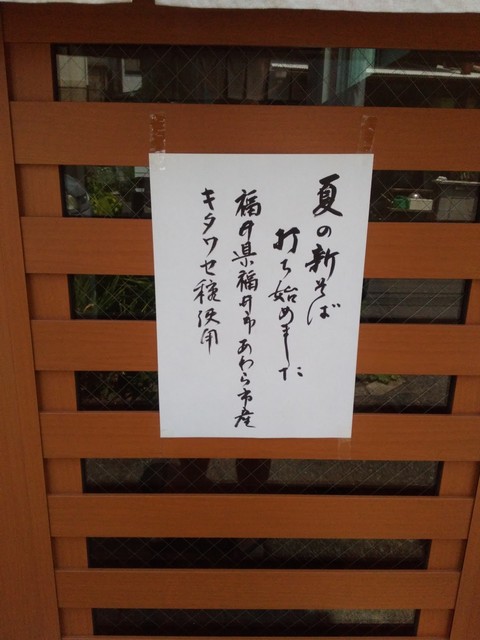 夏の新そば
打ち始めました
福井県福井市あわら市産
キタワセ種使用